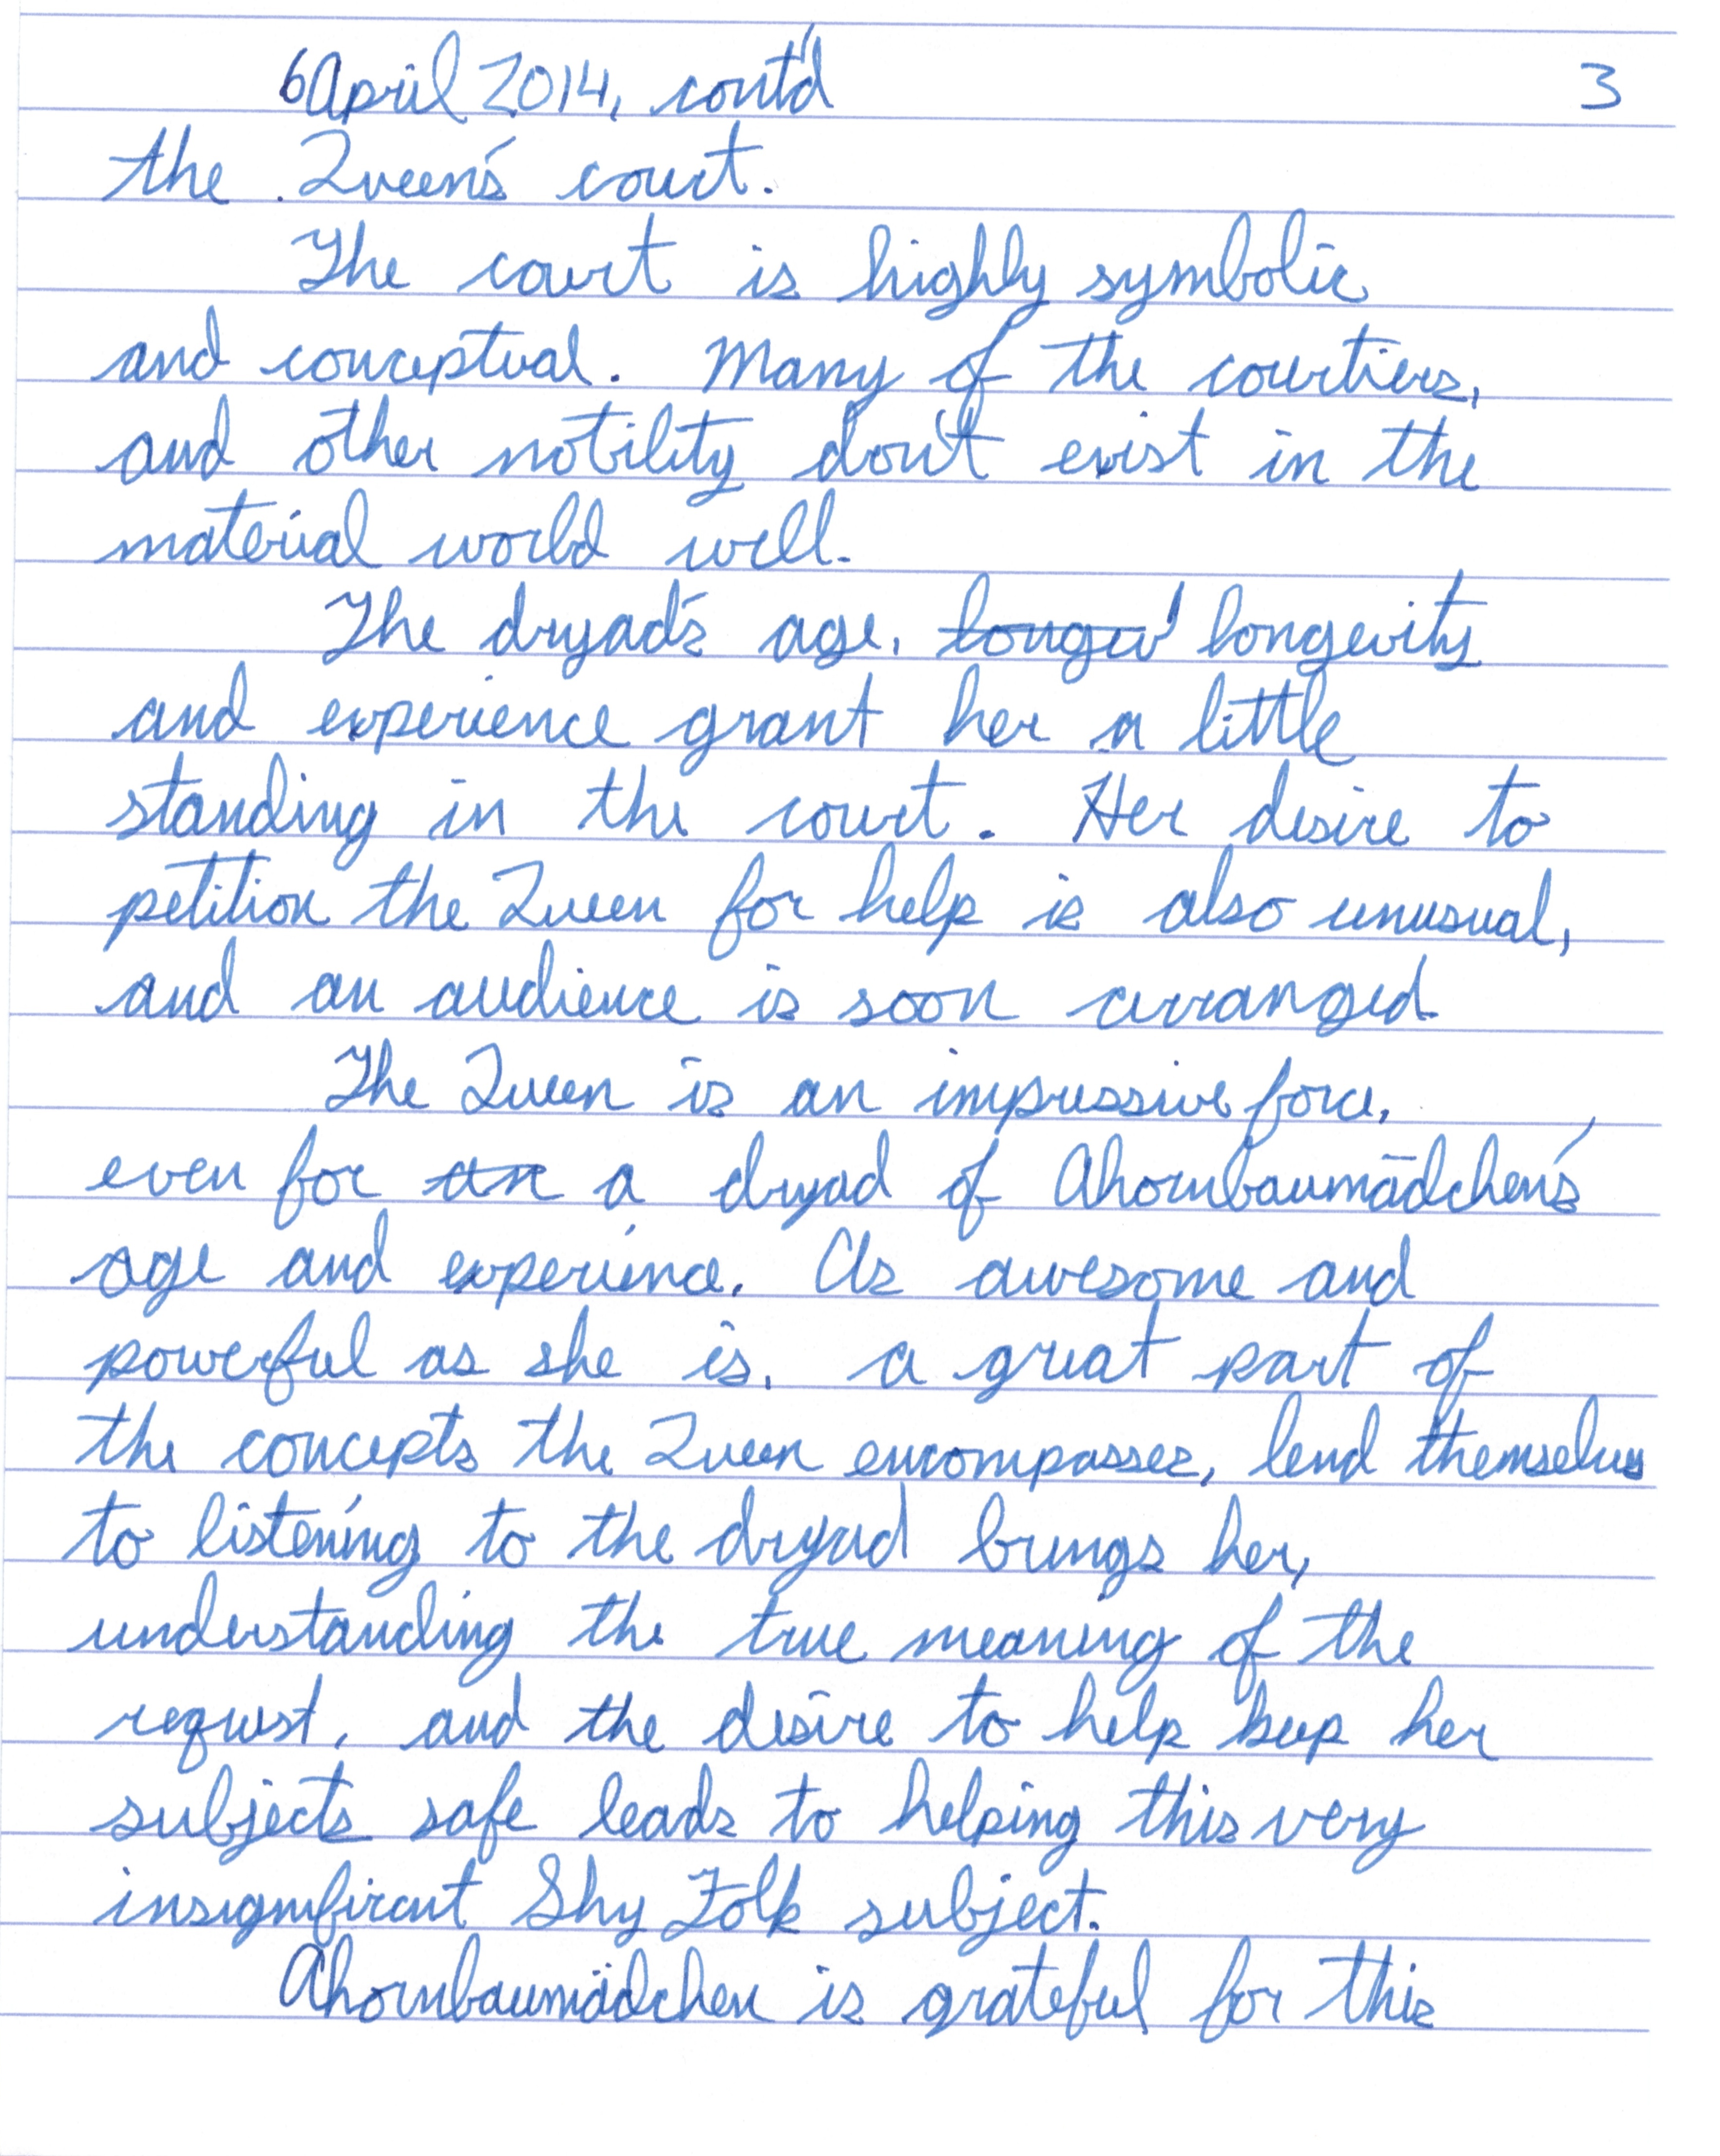 6 April 2014, cont'd 3
the Queen's court.
The court is highly symbolic
and conceptual. Many of the courtiers,
and other nobility don't exist in the
material world well.
The dryad's age, longev longevity
and experience grant her a little
standing in the court. Her desire to
petition the Queen for help is also unusual,
and an audience is soon arranged
The Queen is an impressive force,
even for an a dryad of Ahornbaumädchen's
age and experience. As awesome and
powerful as she is, a great part of
the concepts the Queen encompasses, lend themselves
to listening to the dryad brings her,
understanding the true meaning of the
request, and the desire to help keep her
subjects safe leads to helping this very
insignificant Shy Folk subject.
Ahornbaumädchen is grateful for this